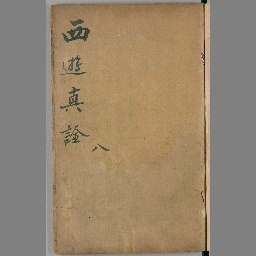 西遊真詮
八